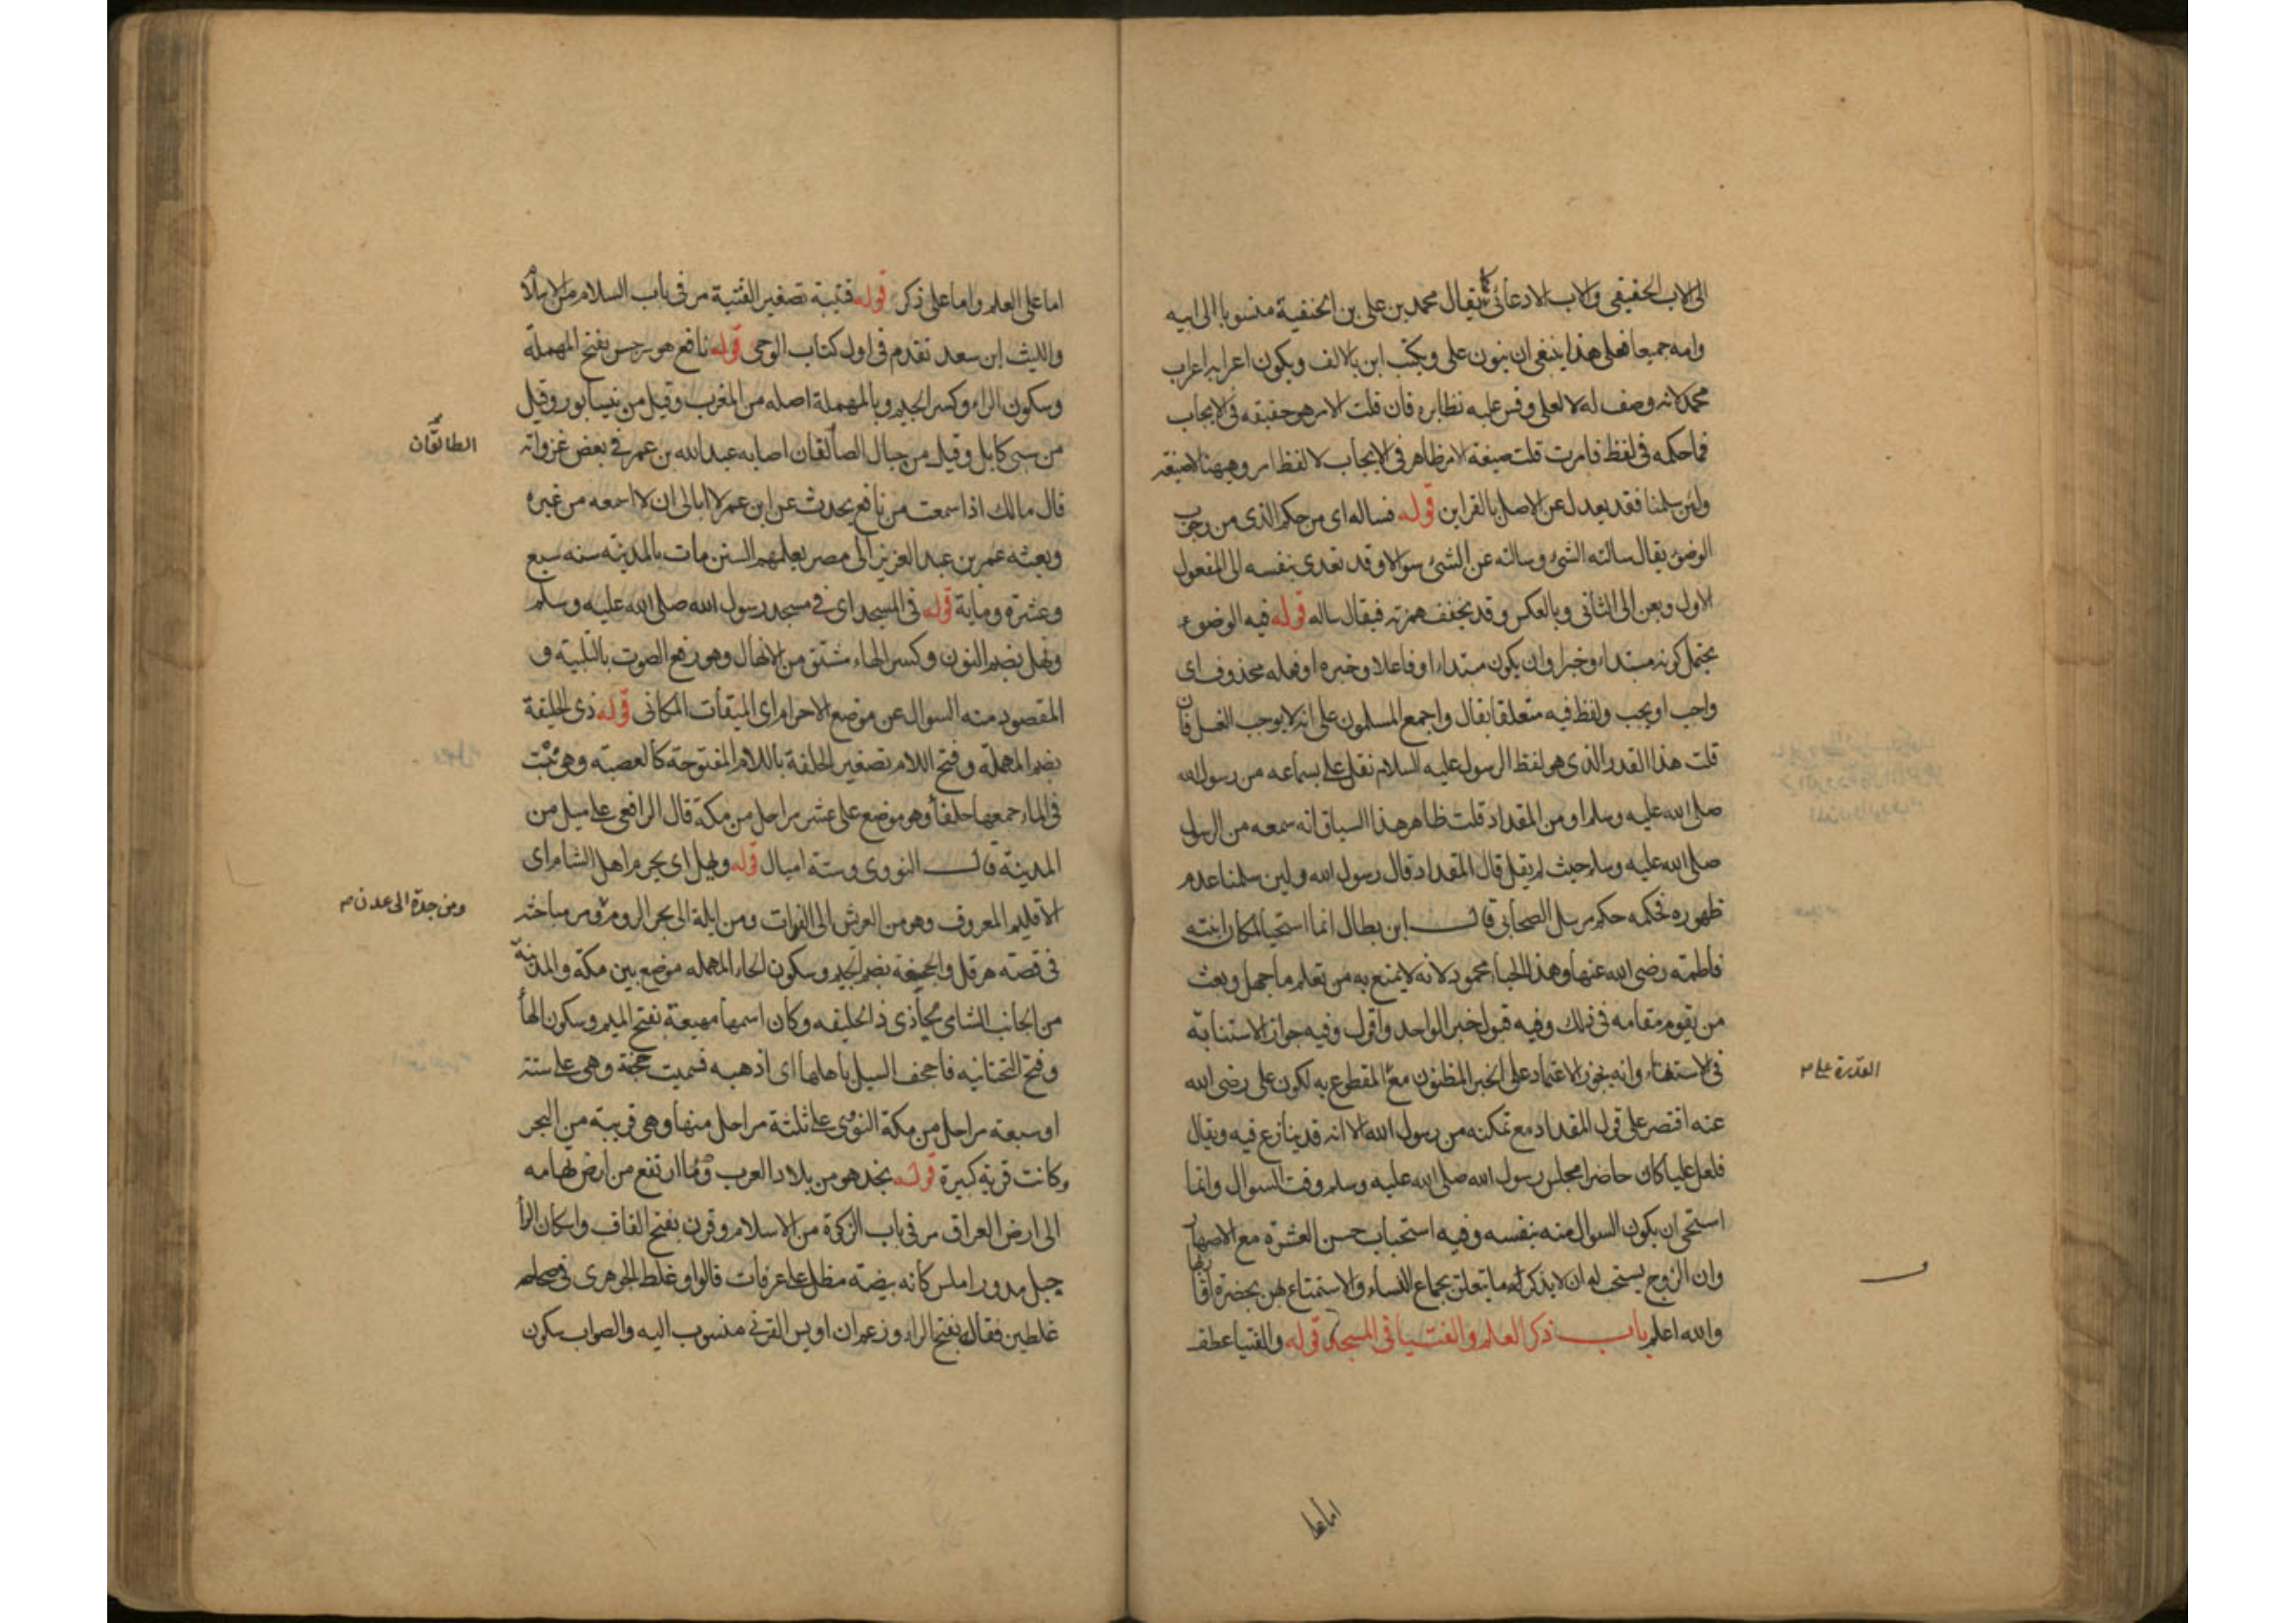 الى الاب الحقيقي والاب الادعائى كما يقال محمد بن على بن الحنفية منسوبا الى ابيه
وامه جميعا فعلى هذا ينبغى ان ينون على ويكتب ابن بالالف ويكون اعرابه اعراب
محمد لانه وصف له لا لعلى وقس عليه نظايره فان قلت الامر هو حقيقه فى الايجاب
فما حكمه فى لفظ فامرت قلت صيغة الامر ظاهر فى الايجاب لا لفظ امر وههنا لا صيغة
ولئن سلمنا فقد يعدل عن الاصل بالقراين قوله فساله اى من حكم الذى من وجوب
الوضوء يقال سالته الشئ وسالته عن الشئ سوالا وقد تعدى بنفسه الى المفعول
الاول وبعن الى الثانى وبالعكس وقد يخفف همزته فيقال ساله قوله فيه الوضوء
يحتمل كونه مبتداء وخبرا وان يكون مبتداء او فاعلا وخبره او فعله محذوف اى
واجب او يجب ولفظ فيه متعلقا بقال واجمع المسلمون على انه لا يوجب الغسل فان
قلت هذا القدر الذى هو لفظ الرسول عليه السلام نقل على بسماعه من رسول الله
صلى الله عليه وسلم او من المقداد قلت ظاهر هذا السياق انه سمعه من الرسول
صلى الله عليه وسلم حيث لم يقل قال المقداد قال رسول الله ولين سلمنا عدم
ظهوره فحكمه حكم مرسل الصحابى قال ابن بطال انما استحيا لمكان ابنته
فاطمة رضى الله عنها وهذا الحياء محمود لانه لا يمنع به من تعلم ما جهل وبعث
من يقوم مقامه فى ذلك وفيه قبول خبر الواحد واقول وفيه جواز الاستنابة
فى الاستفتاء وانه يجوز الاعتماد على الخبر المظنون مع المقطوع به لكون على رضى الله
القدرة على
عنه اقتصر على قول المقداد مع تمكنه من رسول الله الا انه قد ينازع فيه ويقال
فلعل عليا كان حاضرا مجلس رسول الله صلى الله عليه وسلم وقت السوال وانما
استحى ان يكون السوال منه بنفسه وفيه استحباب حسن العشرة مع الاصهار
وان الزوج يستحب له ان لا يذكر ما يتعلق بجماع النساء والاستمتاع بهن بحضرة اقاربها
والله اعلم باب ذكر العلم والفتيا فى المسجد قوله والفتيا عطف
اما على
اما على العلم واما على ذكر قوله قتيبة تصغير القتبة مر فى باب السلام من الاسلام
والليث ابن سعد تقدم فى اول كتاب الوحى قوله نافع هو سرجس بفتح المهملة
وسكون الراء وكسر الجيم وبالمهملة اصله من المغرب وقيل من نيسابور وقيل
من سبى كابل وقيل من جبال الصالقان اصابه عبد الله بن عمر فى بعض غزواته
الطالقان
قال مالك اذا سمعت من نافع يحدث عن ابن عمر لا ابالى ان لا اسمعه من غيره
وبعثه عمر بن عبد العزيز الى مصر يعلمهم السنن مات بالمدينه سنه سبع
وعشرة وماية قوله فى المسجد اى فى مسجد رسول الله صلى الله عليه وسلم
ونهل بضم النون وكسر الهاء مشتق من الاهلال وهو رفع الصوت بالتلبية و
المقصود منه السوال عن موضع الاحرام اى الميقات المكانى قوله ذى الحليفة
بضم المهملة وفتح اللام تصغير الحلفة باللام المفتوحة كالعصبة وهى نبت
فى الماء جمعها حلفا وهو موضع على عشر مراحل من مكة قال الرافعى على ميل من
المدينة قال النووى وستة اميال قوله ويهل اى يحرم اهل الشام اى
الاقليم المعروف وهو من العريش الى الفرات ومن ايلة الى بحر الروم ومر مباحثه
ومن جدة الى عدن
فى قصة هرقل والجحفة بضم الجيم وسكون الحاء المهمله موضع بين مكة والمدينة
من الجانب الشامى يحاذى ذا الحليفه وكان اسمها مهيعة بفتح الميم وسكون الها
وفتح التحتانيه فاجحف السيل باهلها اى اذهبه فسميت جحفة وهى على ستة
او سبعة مراحل من مكة النووى على ثلثة مراحل منها وهى قريبة من البحر
وكانت قرية كبيرة قوله نجد هو من بلاد العرب وهو ما ارتفع من ارض تهامه
الى ارض العراق مر فى باب الزكوة من الاسلام وقرن بفتح القاف واسكان الرا
جبل مدور املس كانه بيضة مطل على عرفات قالوا وغلط الجوهرى فى صحاحه
غلطين فقال بفتح الراء وزعم ان اويس القرنى منسوب اليه والصواب سكون